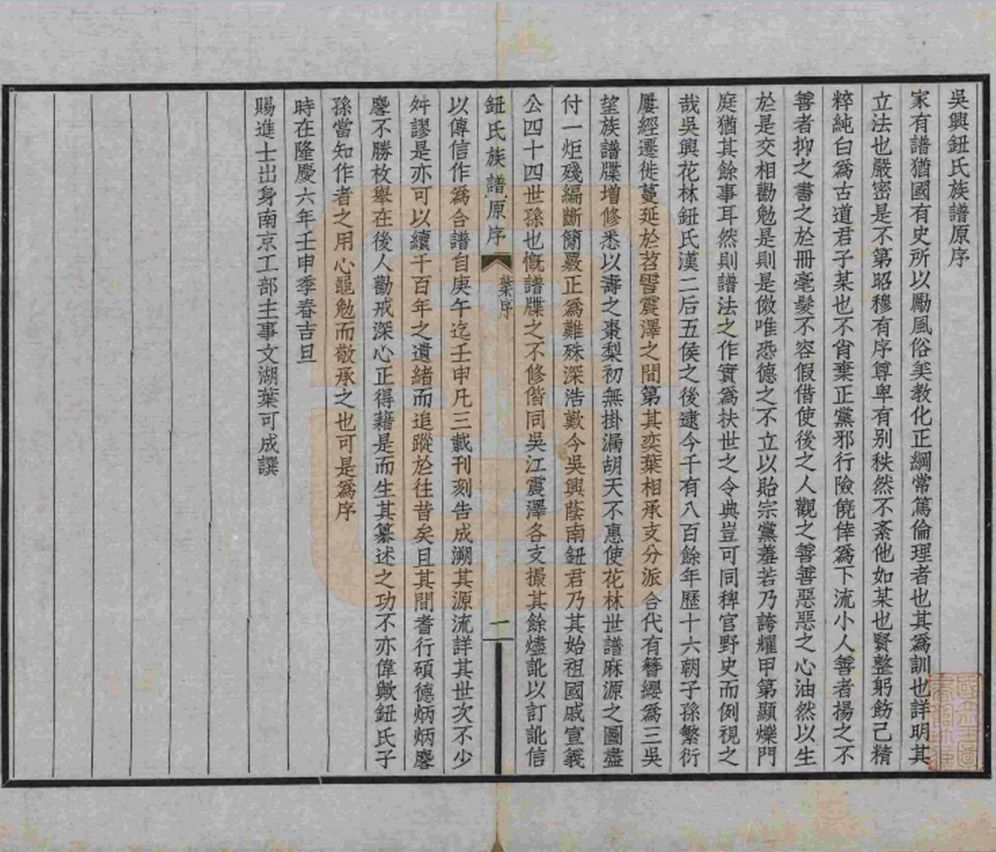 吳興鈕氏族譜原序
家有譜猶國有史所以勵風俗美教化正綱常篤倫理者也其爲訓也詳明其
立法也嚴密是不第昭穆有序尊卑有别秩然不紊他如某也賢整躬飭己精
粹純白爲古道君子某也不肖棄正黨邪行險僥倖爲下流小人善者揚之不
善者抑之書之於冊毫髮不容假借使後之人觀之善善惡惡之心油然以生
於是交相勸勉是則是傚唯恐德之不立以貽宗黨羞若乃誇耀甲第顯爍門
庭猶其餘事耳然則譜法之作實爲扶世之令典豈可同稗官野史而例視之
哉吳興花林鈕氏漢二后五侯之後逮今千有八百餘年歷十六朝子孫繁衍
屢經遷徙蔓延於苕霅震澤之間第其奕葉相承支分派合代有簪纓爲三吳
望族譜牒增修悉以壽之棗梨初無掛漏胡天不惠使花林世譜麻源之圖盡
付一炬殘編斷簡覈正爲難殊深浩歎今吳興蔭南鈕君乃其始祖國戚宣義
公四十四世孫也慨譜牒之不修偕同吳江震澤各支撮其餘燼訛以訂訛信
鈕氏族譜原序
葉序
一
以傳信作爲合譜自庚午迄壬申凡三載刊刻告成溯其源流詳其世次不少
舛謬是亦可以續千百年之遺緒而追蹤於往昔矣且其間耆行碩德炳炳麐
麐不勝枚舉在後人勸戒深心正得藉是而生其纂述之功不亦偉歟鈕氏子
孫當知作者之用心黽勉而敬承之也可是爲序
時在隆慶六年壬申季春吉旦
賜進士出身南京工部主事文湖葉可成譔